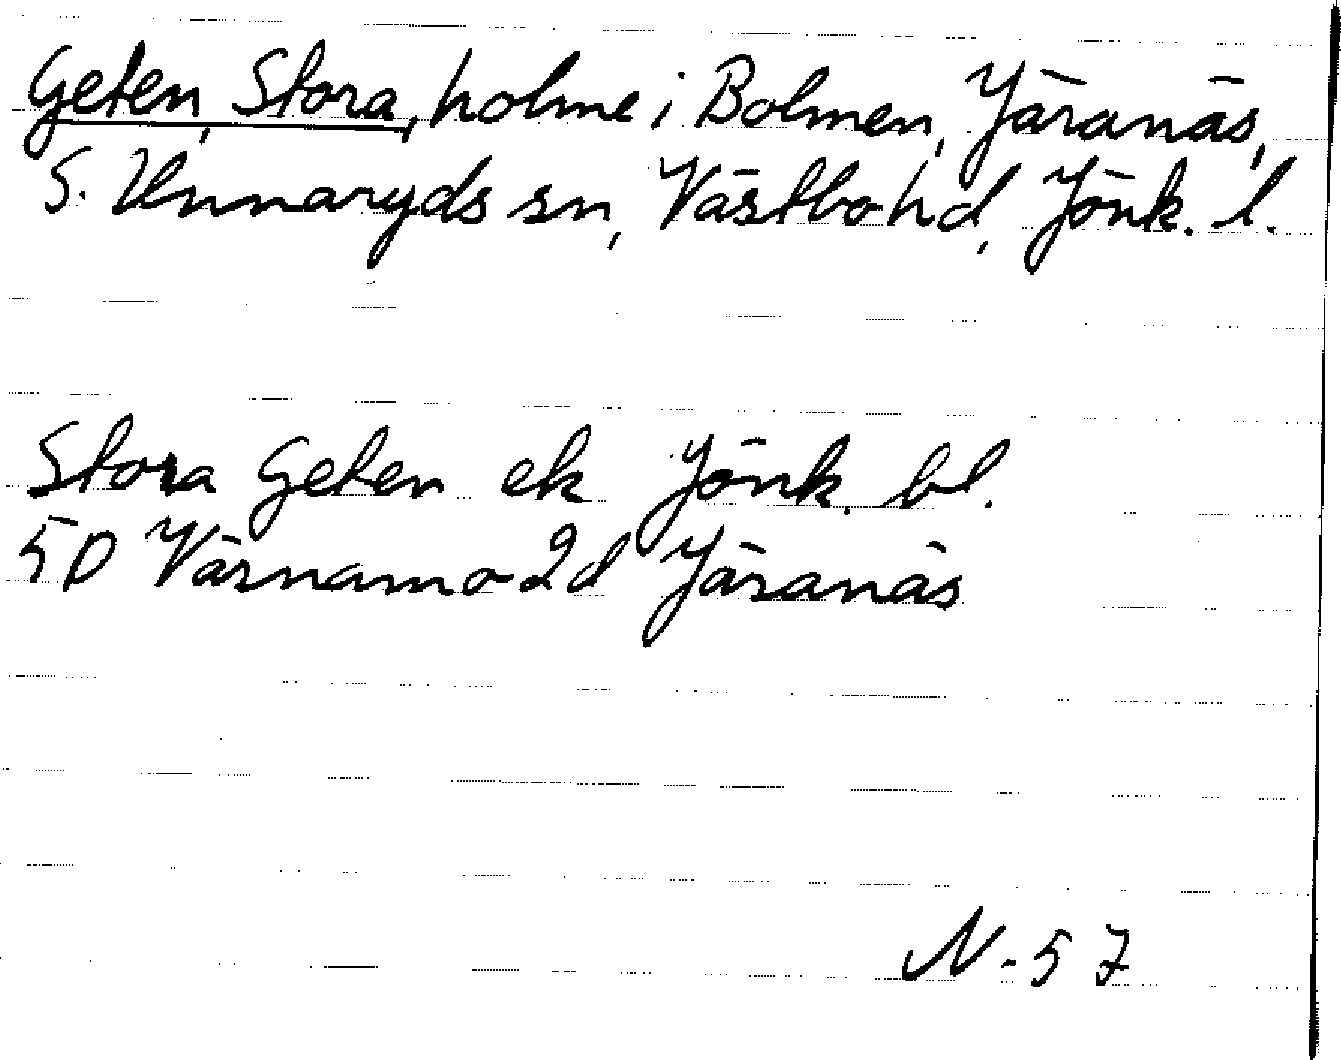 Geten, Stora, holme i Bolmen, Järanäs,
S. Unnaryds sn, Västbo hd, Jönk. l.
Stora Geten ek Jönk. bl.
5D Värnamo 2d Järanäs
N-57